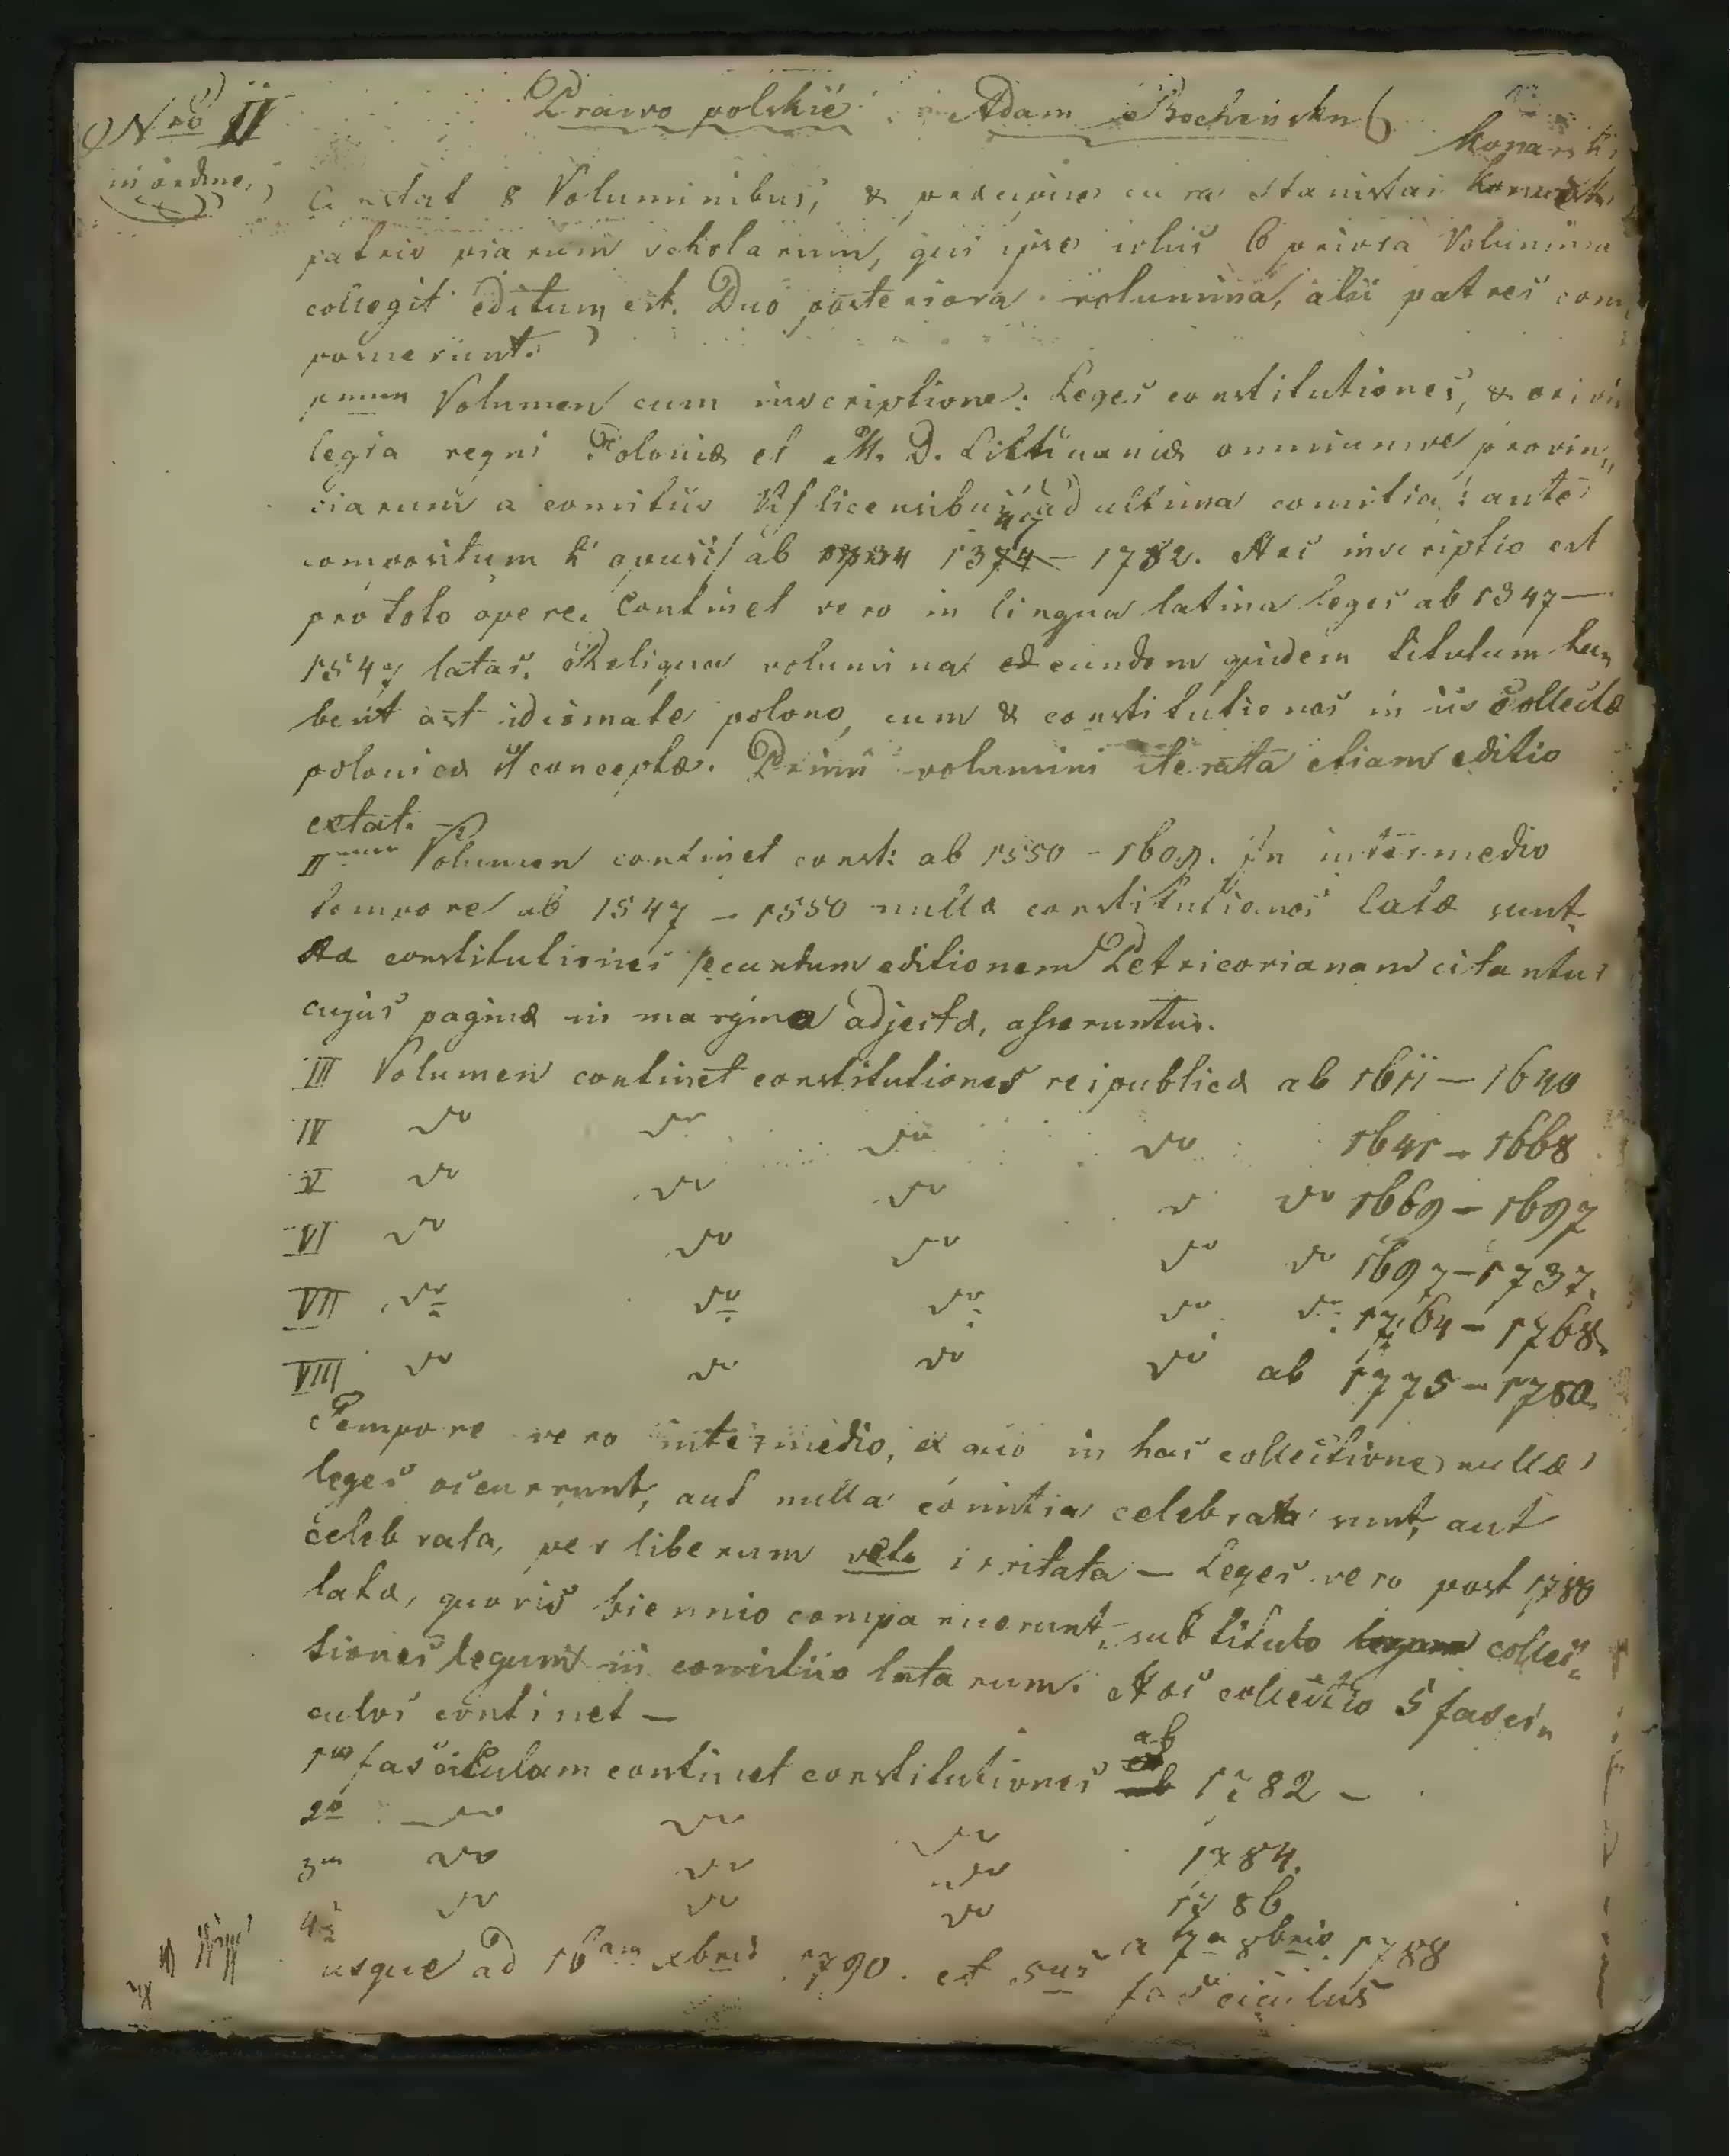 Nro II
in ordine,
Prawo polskie Adam Bochenskn
Konarski
Constat 8 Voluminibus, & præcipue cura Stanislai
patris piarum scholarum, qui ipse istius 6 priora Volumina
collegit editum est. Duo posteriora volumina, alii patres com„
posuerunt.
pmum Volumen cum inscriptione: Leges constitutiones, & privi
legia regni Poloniæ et M. D. Litthuaniæ omniumve provin„
ciarum a comitiis Visliceusibus ad ultima comitia: ante
47
compositum h opus:/ ab 1374 — 1782. Hæc inscriptio est
pro toto opere. Continet vero in lingua latina leges ab 1347 —
1547 latas. Reliqua volumina eundem quidem titulum ha„
bent ast idiomate polono, cum & constitutiones in iis collectæ
polonice st conceptæ. Primi volumini iterata etiam editio
extat. —
IImum Volumen continet const: ab 1550 – 1609. In intermedio
tempore ab 1547 — 1550 nullæ constitutiones latæ sunt.
Hæ constitutiones secundum editionem Petricorianam citantur
cujus paginæ in margine adjectæ, asseruntur.
III Volumen continet constitutiones reipublicæ ab 1611 — 1640
IV do do do do 1641 — 1668
V do do do do 1669 — 1697
VI do do do do do 1697 — 1737.
VII do do do do do 1764 — 1768.
VIII do do do do ab 1775 — 1780.
Tempore vero intermedio, ex quo in hac collectione nullæ
leges occurrunt, aut nulla comitia celebrata sunt, aut
celebrata, per liberum veto irritata — Leges vero post 1780
latæ, quovis biennio comparuerunt, sub titulo collec„
tiones legum in comitiis latarum. Hæc collectio 5 fasci„
culos continet —
1um fasciculum continet constitutiones ab 1782 —
2do do do do 1784.
3m do do do 1786
4 do do do a 7a 8bris 1788
usque ad 16am xbris 1790. et 5us fasciculus